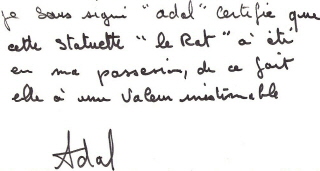 je sous signé "adal" certifie que
cette statuette "le Rat" à été
en ma possession, de ce fait
elle à une valeur inestimable
Adal